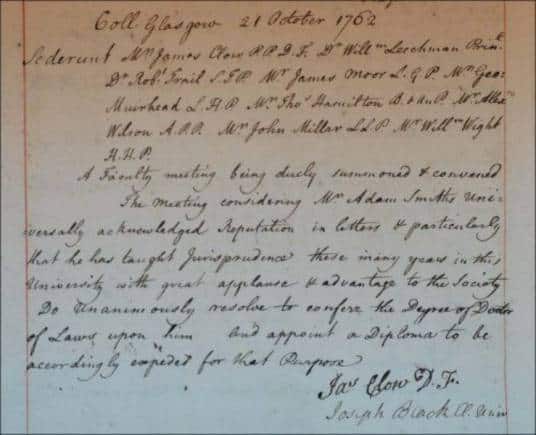 Coll. Glasgow 21 October 1762
Sederunt Mr James Clow P.P. D.F. Dr Willm Leechman Prin:l
Dr Robt Trail S.T.P. Mr James Moor L.G.P. Mr Geo:
Muirhead L.H.P. Mr Thos Hamilton B. & An.P. Mr Alexr
Wilson A.P.P. Mr John Millar L.L.P. Mr Willm Wight
H.H.P.
A Faculty meeting being duely summoned & convened
The Meeting considering Mr Adam Smiths Uni-
versally acknowledged Reputation in letters & particularly
that he has taught Jurisprudence these many years in this
University with great applause & advantage to the Society
Do Unanimously resolve to confere the Degree of Doctor
of Laws upon him and appoint a Diploma to be
accordingly expeded for that Purpose
Jas Clow D.F.
Joseph Black Cl. Univ